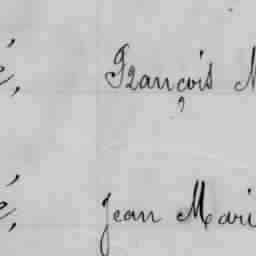 François
Jean Mari